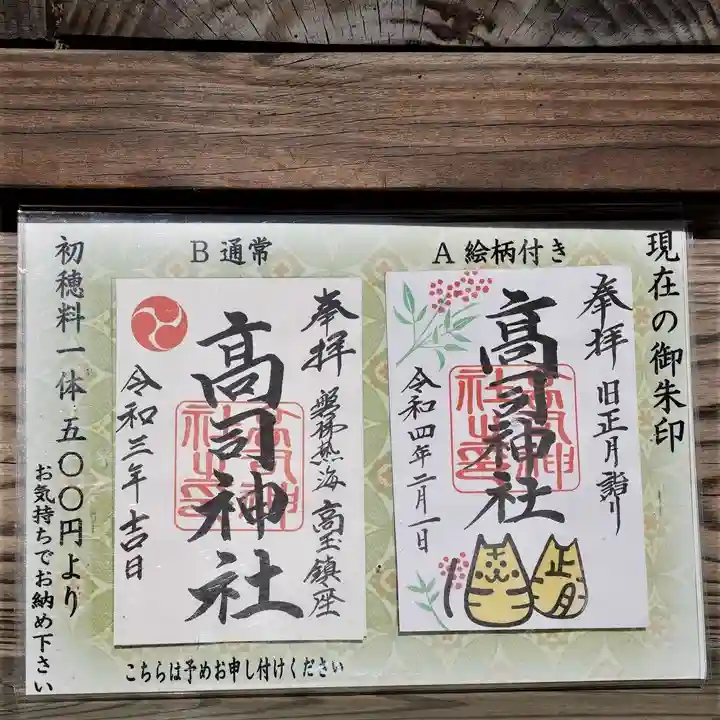 現在の御朱印
A 絵柄付き
奉拝 旧正月詣り
高司神社
令和四年二月一日
正月
B 通常
奉拝 磐梯熱海 高玉鎮座
高司神社
令和三年吉日
初穂料一体 五〇〇円より
お気持ちでお納め下さい
こちらは予めお申し付けください